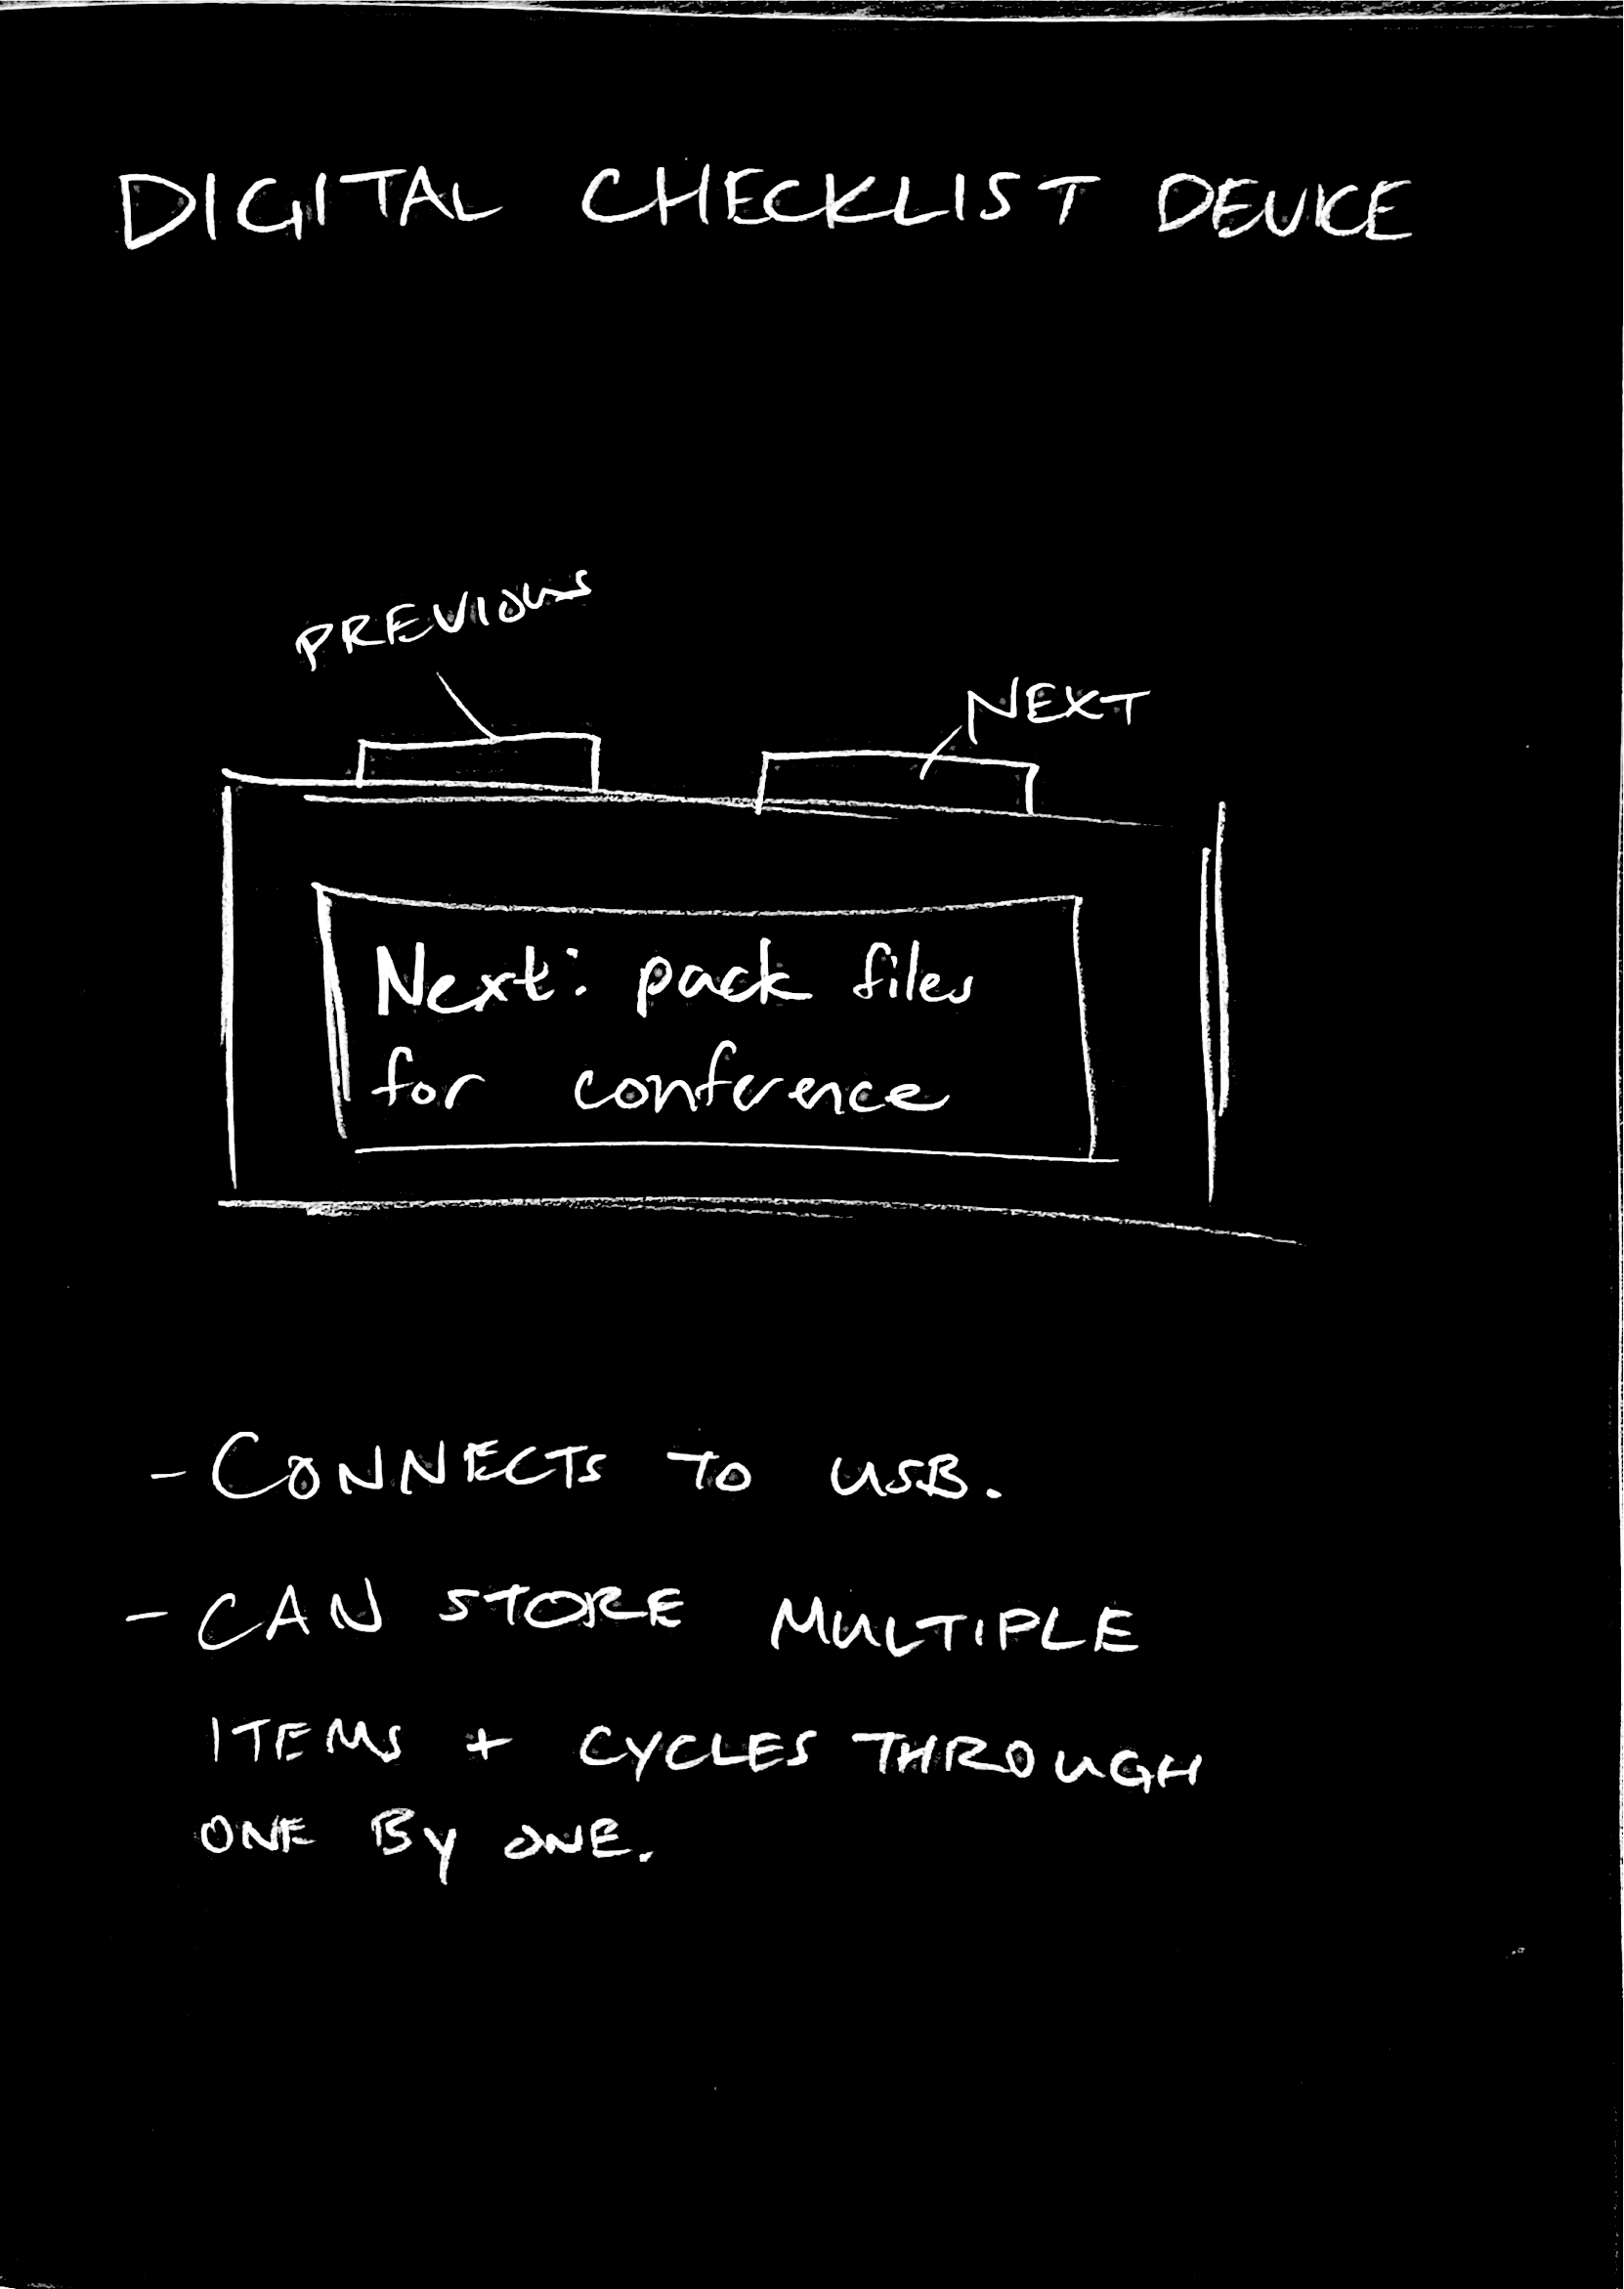 DIGITAL CHECKLIST DEVICE
PREVIOUS
NEXT
Next: pack files
for conference
- CONNECTS TO USB.
- CAN STORE MULTIPLE
ITEMS + CYCLES THROUGH
ONE BY ONE.